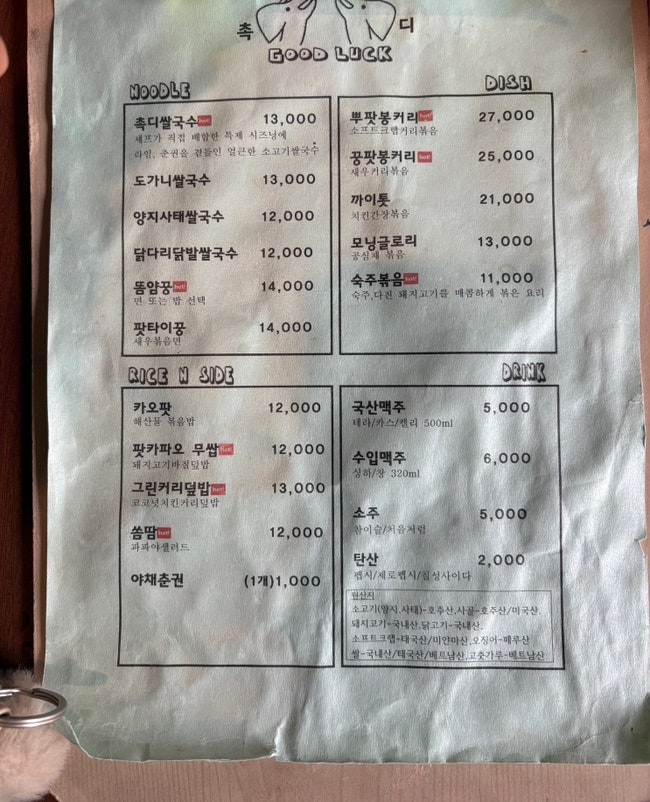 촉 디
GOOD LUCK
NOODLE
촉디쌀국수 hot! 13,000
셰프가 직접 배합한 특제 시즈닝에
라임, 춘권을 곁들인 얼큰한 소고기쌀국수
도가니쌀국수 13,000
양지사태쌀국수 12,000
닭다리닭발쌀국수 12,000
똠얌꿍 hot! 14,000
면 또는 밥 선택
팟타이꿍 14,000
새우볶음면
DISH
뿌팟봉커리 hot! 27,000
소프트크랩커리볶음
꿍팟봉커리 hot! 25,000
새우커리볶음
까이톳 21,000
치킨간장볶음
모닝글로리 13,000
공심채 볶음
숙주볶음 hot! 11,000
숙주,다진 돼지고기를 매콤하게 볶은 요리
RICE N SIDE
카오팟 12,000
해산물 볶음밥
팟카파오 무쌉 hot! 12,000
돼지고기바질덮밥
그린커리덮밥 hot! 13,000
코코넛치킨커리덮밥
쏨땀 hot! 12,000
파파야샐러드
야채춘권 (1개)1,000
DRINK
국산맥주 5,000
테라/카스/켈리 500ml
수입맥주 6,000
싱하/창 320ml
소주 5,000
참이슬/처음처럼
탄산 2,000
펩시/제로펩시/칠성사이다
원산지
소고기(양지,사태)-호주산,사골-호주산/미국산,
돼지고기-국내산,닭고기-국내산,
소프트크랩-태국산/미얀마산,오징어-페루산
쌀-국내산/태국산/베트남산,고춧가루-베트남산